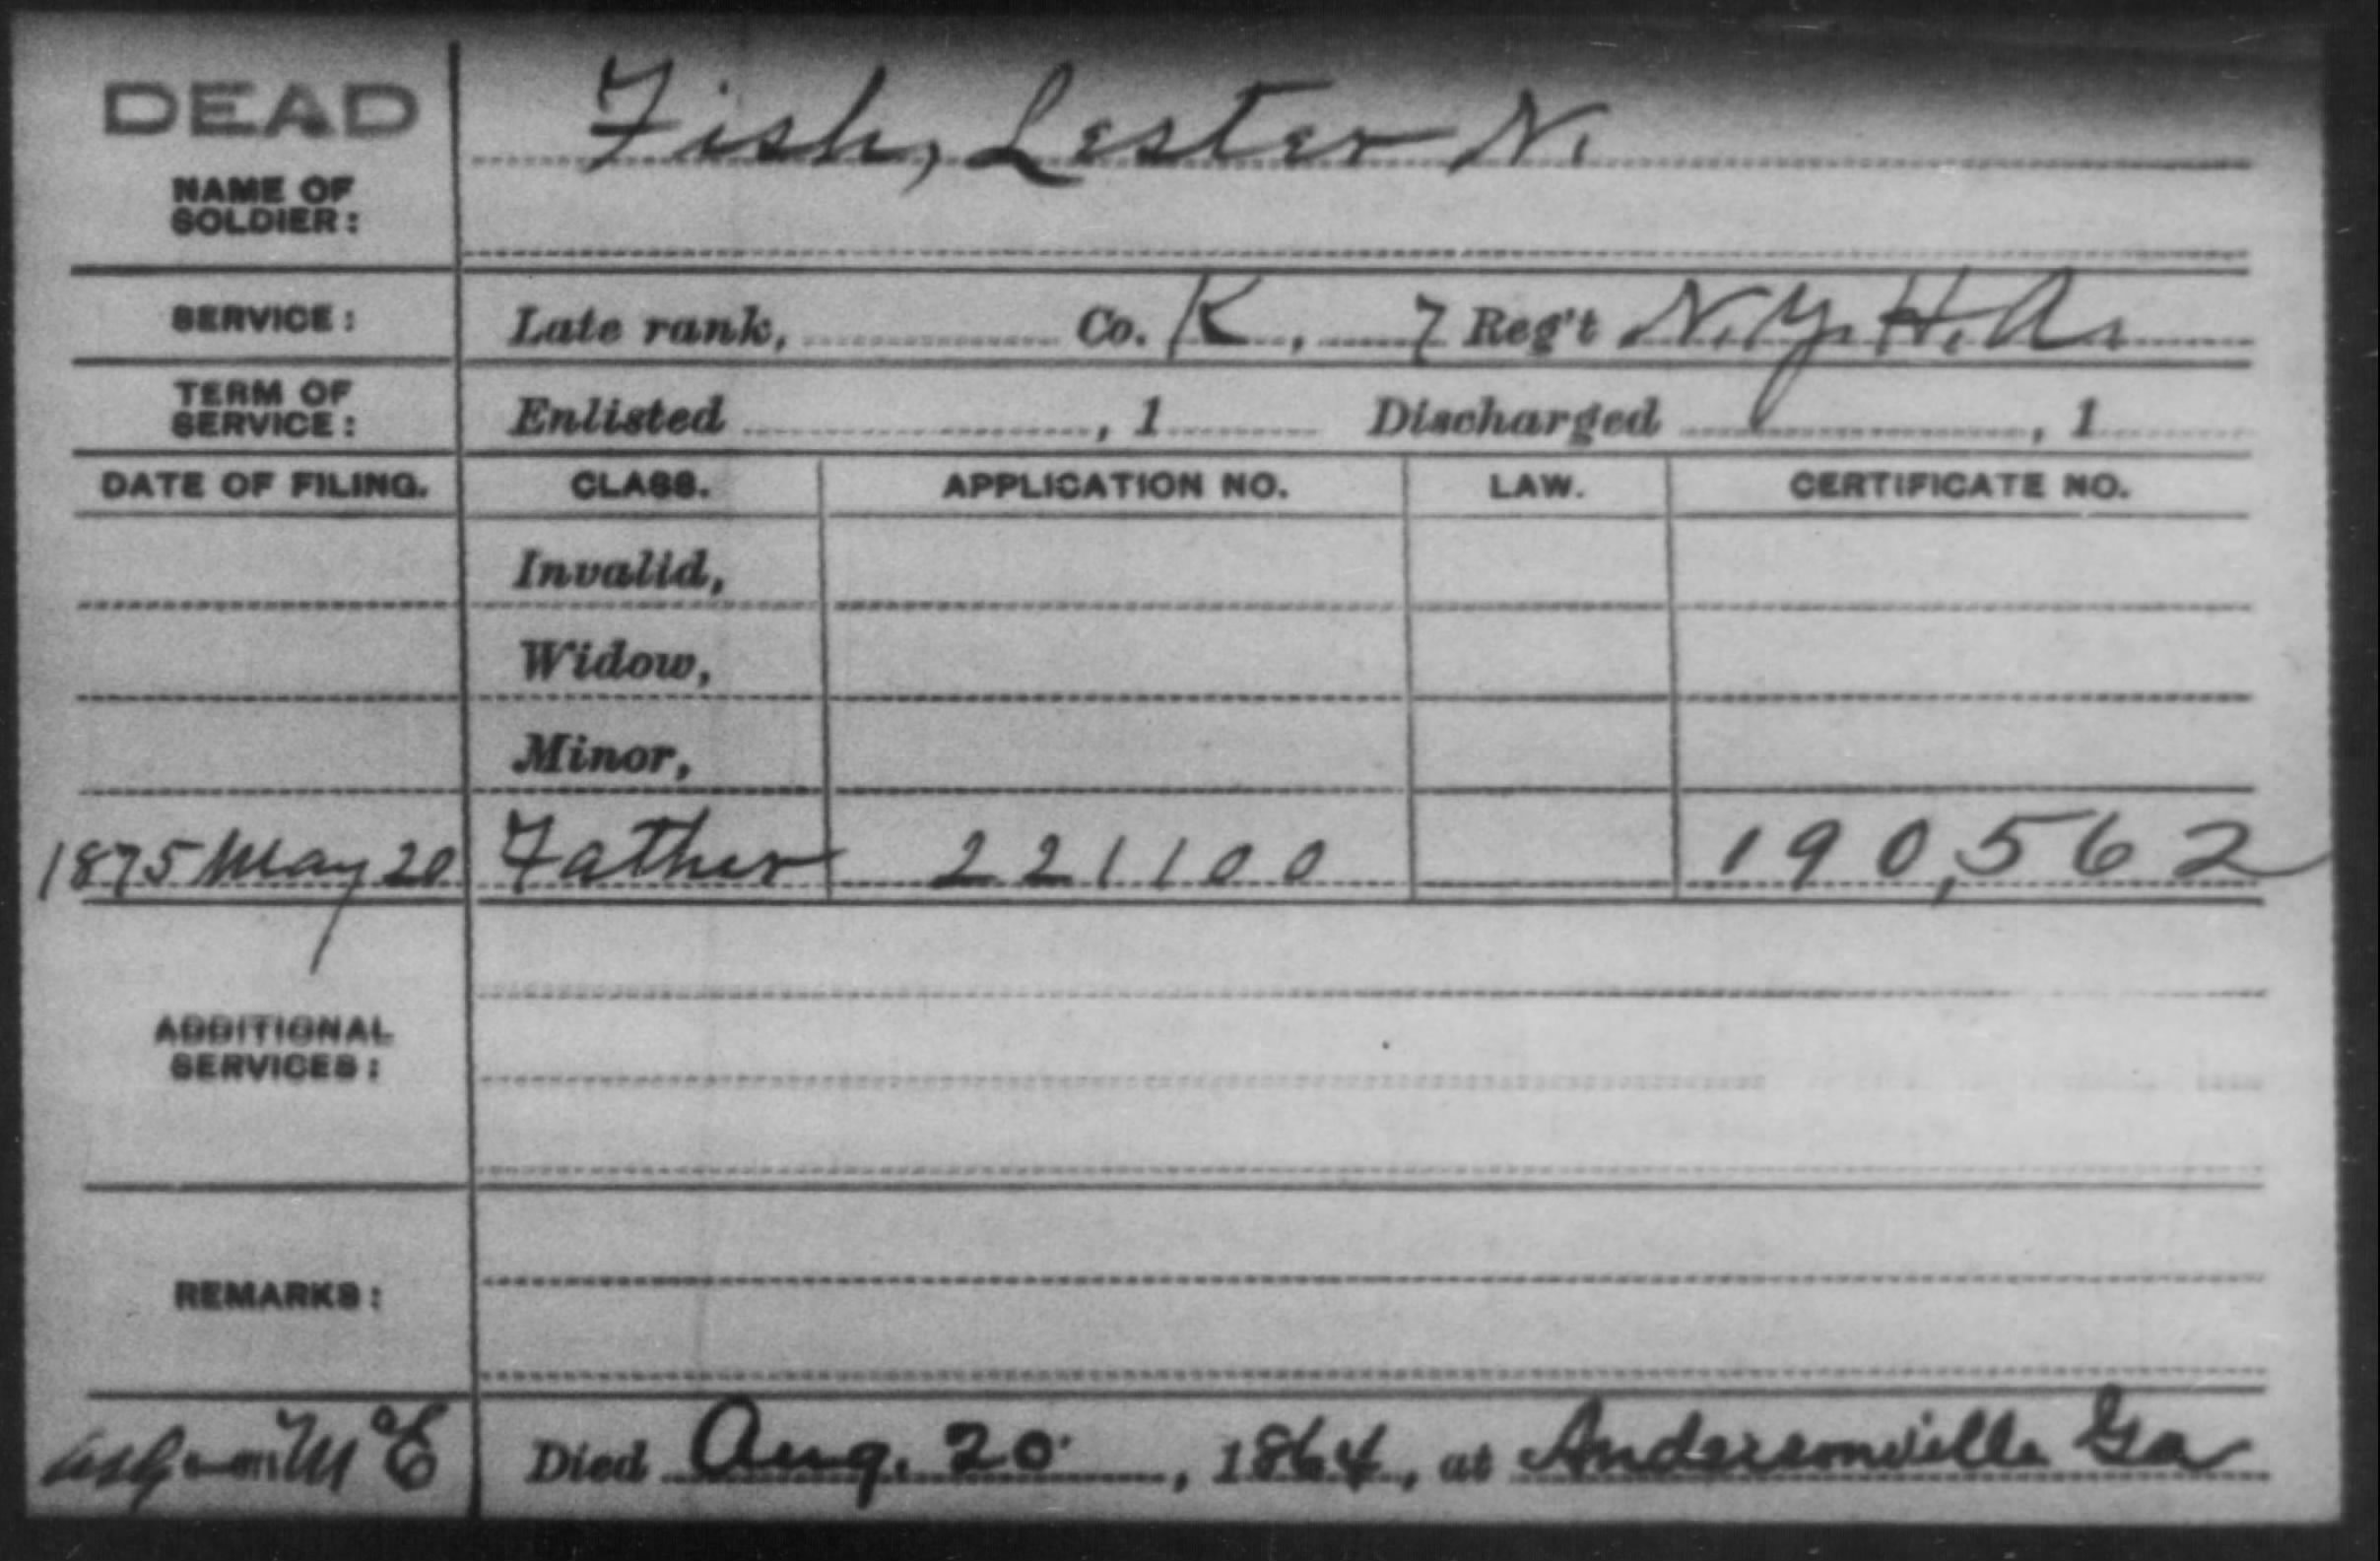 DEAD
Fish, Lester N.
NAME OF
SOLDIER:
SERVICE: Late rank, Co. K, 7 Reg't N.Y. H.A.
TERM OF
SERVICE: Enlisted , 1 Discharged , 1
DATE OF FILING. CLASS. APPLICATION NO. LAW. CERTIFICATE NO.
Invalid,
Widow,
Minor,
1875 May 20 Father 221100 190,562
ADDITIONAL
SERVICES:
REMARKS:
Died Aug. 20, 1864, at Andersonville Ga